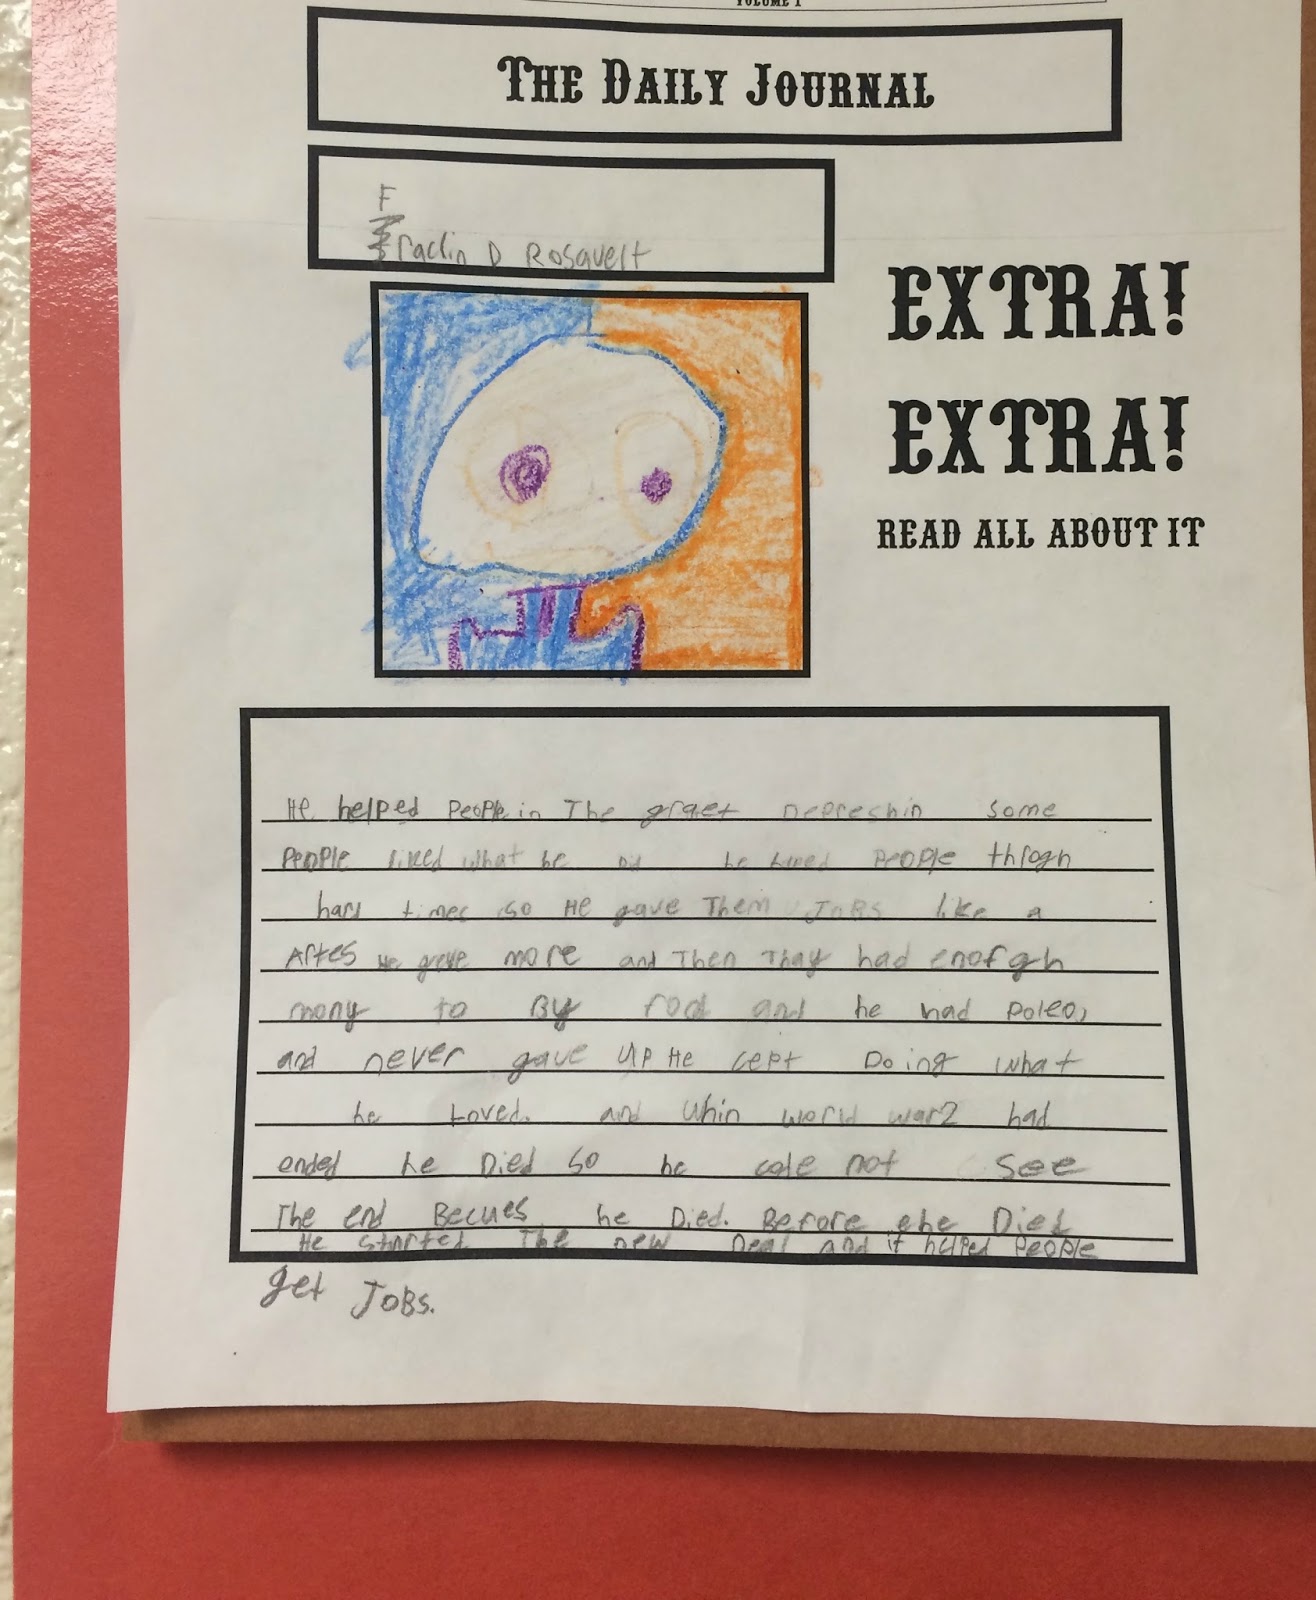 VOLUME 1
THE DAILY JOURNAL
F
Fraclin D Rosquelt
EXTRA!
EXTRA!
READ ALL ABOUT IT
He helped People in The graet Depreshin some
People liked what he Did he PEOPLE throgh
hard times so He gave Them JoBs like a
Artes He greve more and Then Thay had enofgh
mony to By food and he had Poleo,
and never gave UP He cept Doing what
he Loved. and whin world war2 had
ended he Died so he code not see
The end Becues he Died. Before ehe Died
He started The new Deal and it helped People
get JoBs.